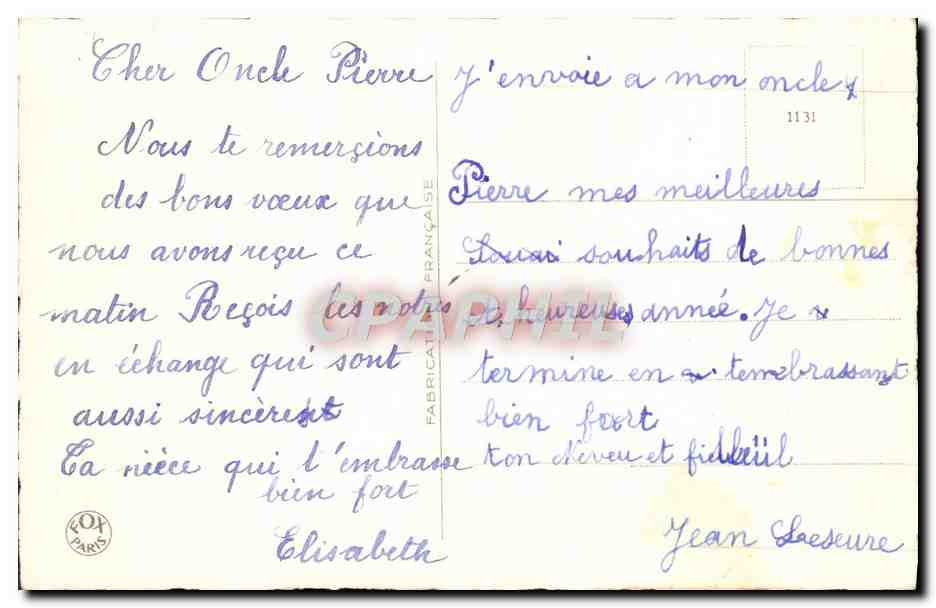 Cher Oncle Pierre
Nous te remerçions
des bons vœux que
nous avons reçu ce
matin Reçois les notres
en échange qui sont
aussi sincère
Ta nièce qui t'embrasse
bien fort
Elisabeth
FOX
PARIS
FABRICATION FRANÇAISE
1131
J'envoie a mon oncle
Pierre mes meilleures
souhaits de bonnes
et heureuses année. Je
termine en tembrassant
bien fort
ton Neveu et
Jean Leseure
CPAPHIL